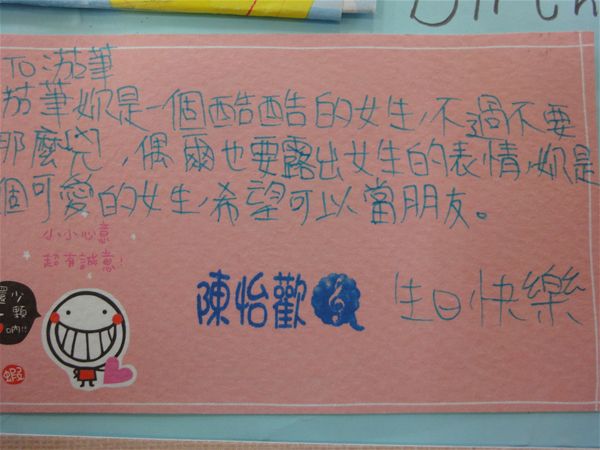 Birth
TO:茄葦
茄葦妳是一個酷酷的女生,不過不要
那麼兇,偶爾也要露出女生的表情,妳是
個可愛的女生,希望可以當朋友。
小小心意
超有誠意!
陳怡歡
生日快樂
還少
顆
吶!!
蝦